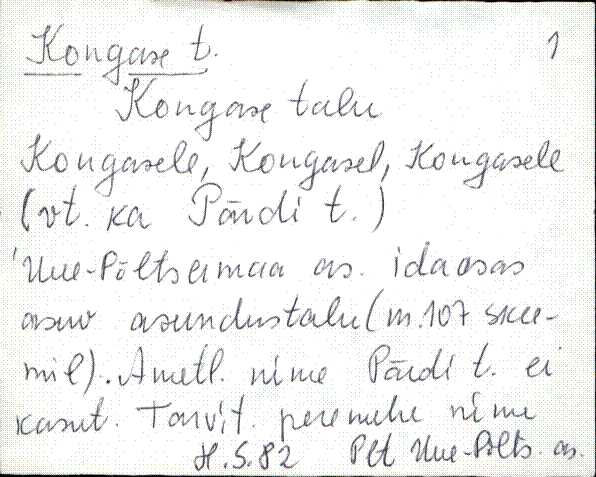 Kongase t. 1
Kongase talu
Kongasele, Kongasel, Kongasele
(vt. ka Pärdi t.)
Uue-Põltsamaa as. idaosas
asuv asundustalu (m. 107 skee-
mil). Ametl. nime Pärdi t. ei
kasut. Tarvit. peremehe nime
H. S. 82 Plt Uue-Põlts. as.